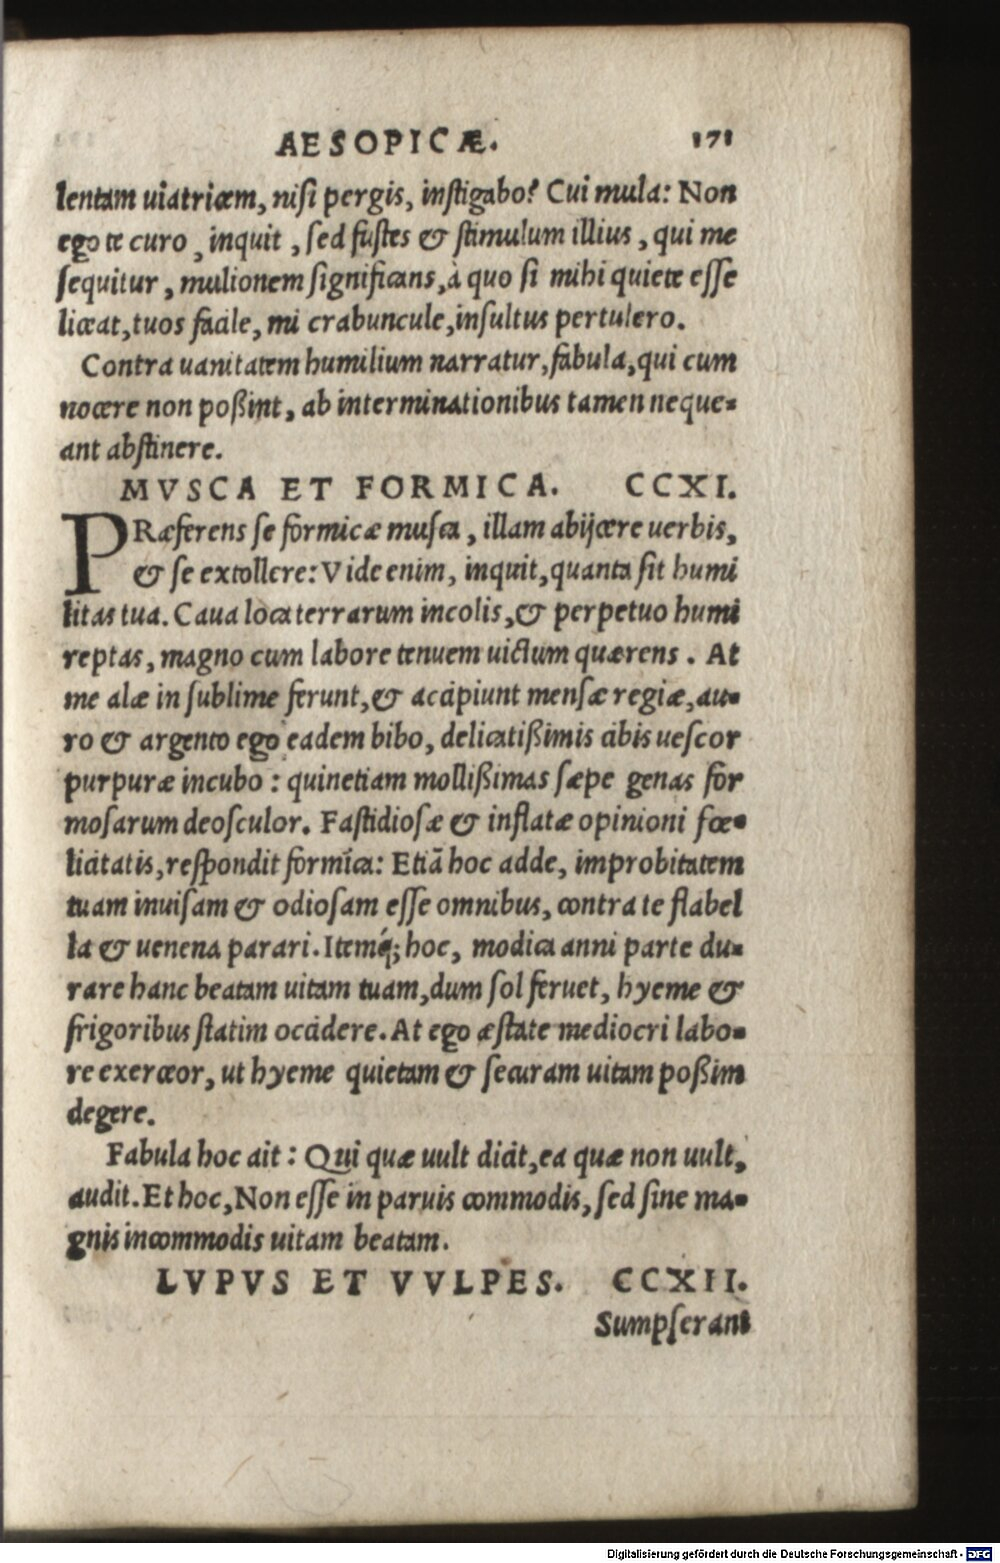 AESOPICÆ. 171
lentam uiatricem, niſi pergis, inſtigabo? Cui mula: Non
ego te curo, inquit, ſed fuſtes & ſtimulum illius, qui me
ſequitur, mulionem ſignificans, à quo ſi mihi quiete eſſe
liceat, tuos facile, mi crabuncule, inſultus pertulero.
Contra uanitatem humilium narratur, fabula, qui cum
nocere non poßint, ab interminationibus tamen neque-
ant abſtinere.
MVSCA ET FORMICA. CCXI.
PRæferens ſe formicæ muſca, illam abijcere uerbis,
& ſe extollere: Vide enim, inquit, quanta ſit humi
litas tua. Caua loca terrarum incolis, & perpetuo humi
reptas, magno cum labore tenuem uictum quærens. At
me alæ in ſublime ferunt, & accipiunt menſæ regiæ, au-
ro & argento ego eadem bibo, delicatißimis cibis ueſcor
purpuræ incubo: quinetiam mollißimas ſæpe genas for
moſarum deoſculor. Faſtidioſæ & inflatæ opinioni fœ-
licitatis, reſpondit formica: Etiã hoc adde, improbitatem
tuam inuiſam & odioſam eſſe omnibus, contra te flabel
la & uenena parari. Itemq́; hoc, modica anni parte du-
rare hanc beatam uitam tuam, dum ſol feruet, hyeme &
frigoribus ſtatim occidere. At ego æſtate mediocri labo-
re exerceor, ut hyeme quietam & ſecuram uitam poßim
degere.
Fabula hoc ait: Qui quæ uult dicit, ea quæ non uult,
audit. Et hoc, Non eſſe in paruis commodis, ſed ſine ma-
gnis incommodis uitam beatam.
LVPVS ET VVLPES. CCXII.
Sumpſerant
Digitalisierung gefördert durch die Deutsche Forschungsgemeinschaft - DFG